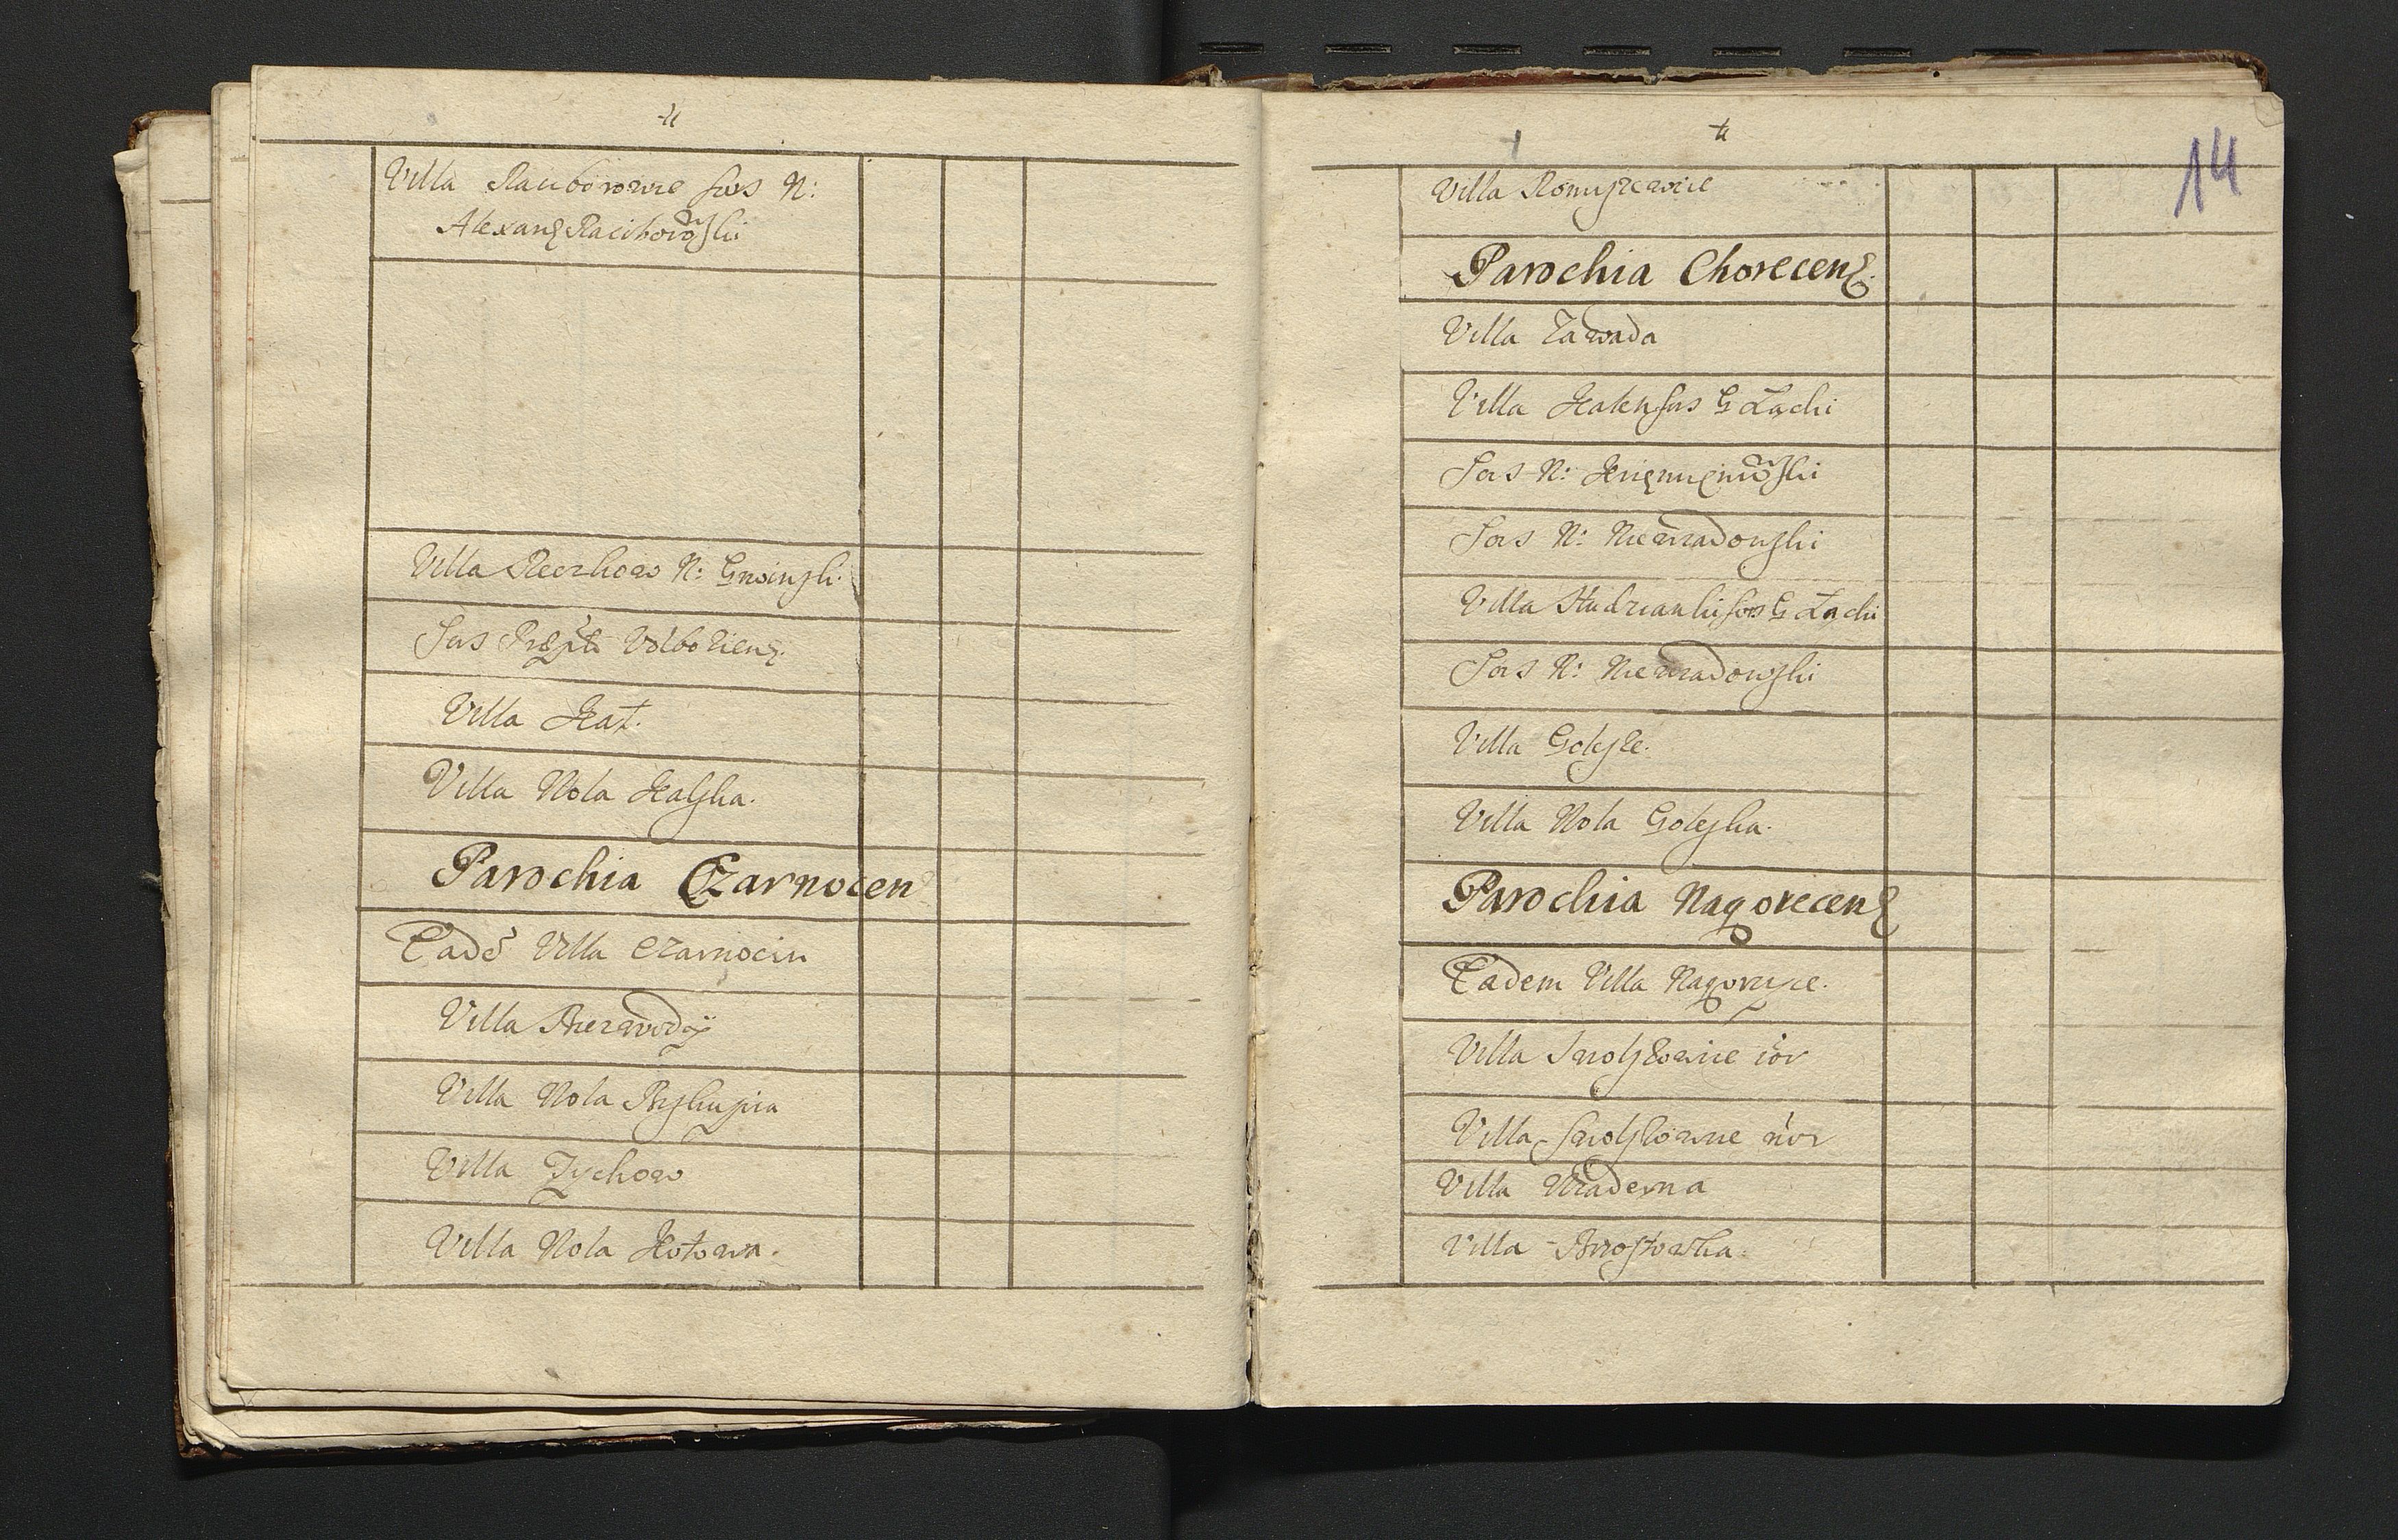 Villa Raciborowice sors N:
Alexand Raciborowski
Villa Kerkow N: Gnoinski.
Sors Præpti Volborien.
Villa Kał.
Villa Wola Kalska.
Parochia Czarnocen
Eadē Villa Czarnocin
Villa Biezwody
Villa Wola Biskupia
Villa Zychow
Villa Wola Kotowa.
14
Villa Romiszewice
Parochia Chorecens.
Villa Zawada
Villa Kalen sors G Łącki
Sors N:
Sors N: Niewiadowski
Villa Studzianki sors G Łącki
Sors N: Niewiadowski
Villa Golesze.
Villa Wola Goleska.
Parochia Nagorecens
Eadem Villa Nagorzyce.
Villa Smolszewice iōr
Villa Smolszewice mōr
Villa Wiaderna
Villa Brostowka.